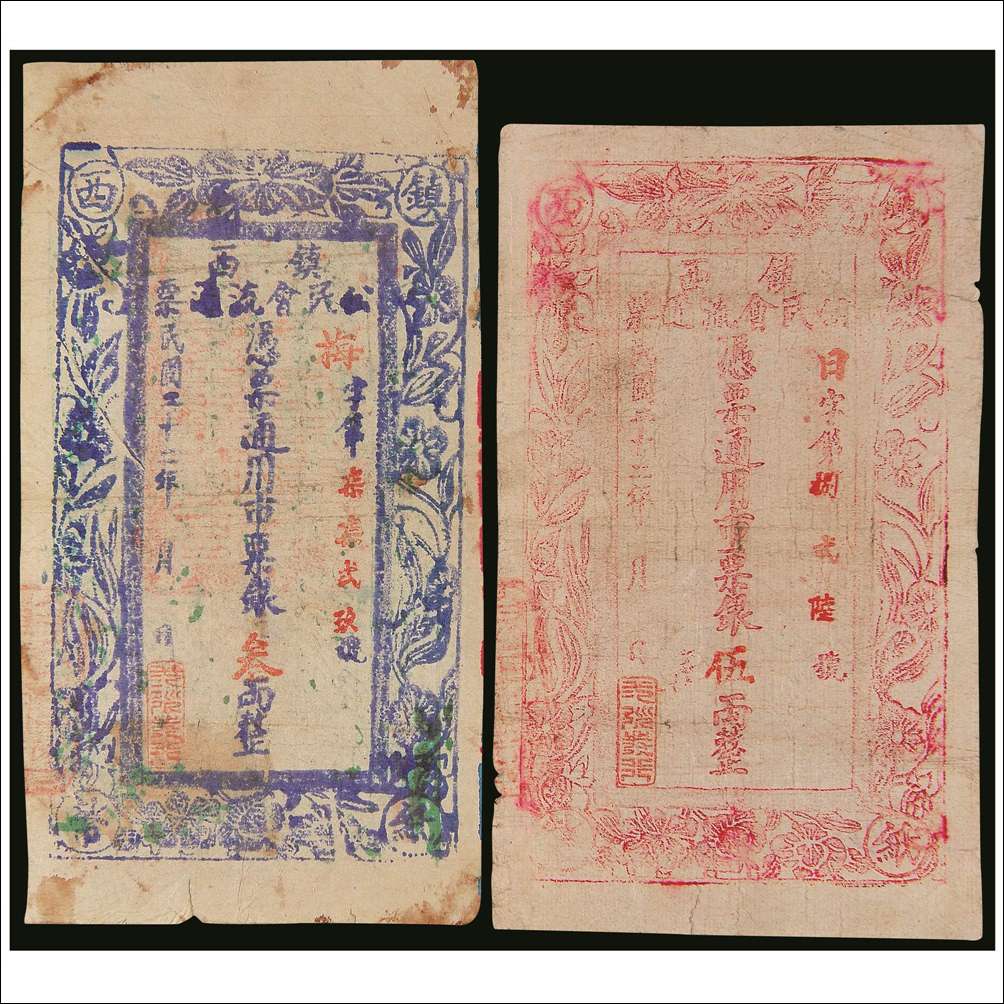 鎮西
鎮西
公民會流通票
梅字第柒柒弍玖號
憑票通用市票銀叁両整
民國二十二年 月
西
鎮西
民會流通票
日字第捌弍陸號
憑票通用市票銀伍両整
民國二十二年 月